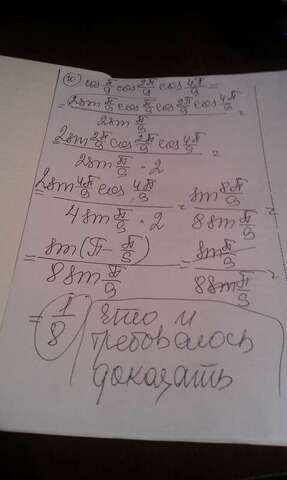 10) cos π/9 cos 2π/9 cos 4π/9 =
= 2sin π/9 cos π/9 cos 2π/9 cos 4π/9 / 2sin π/9 =
= 2sin 2π/9 cos 2π/9 cos 4π/9 / 2sin π/9 · 2 =
= 2sin 4π/9 cos 4π/9 / 4sin π/9 · 2 = sin 8π/9 / 8sin π/9 =
= sin(π - π/9) / 8sin π/9 = sin π/9 / 8sin π/9 =
= 1/8 что и
требовалось
доказать